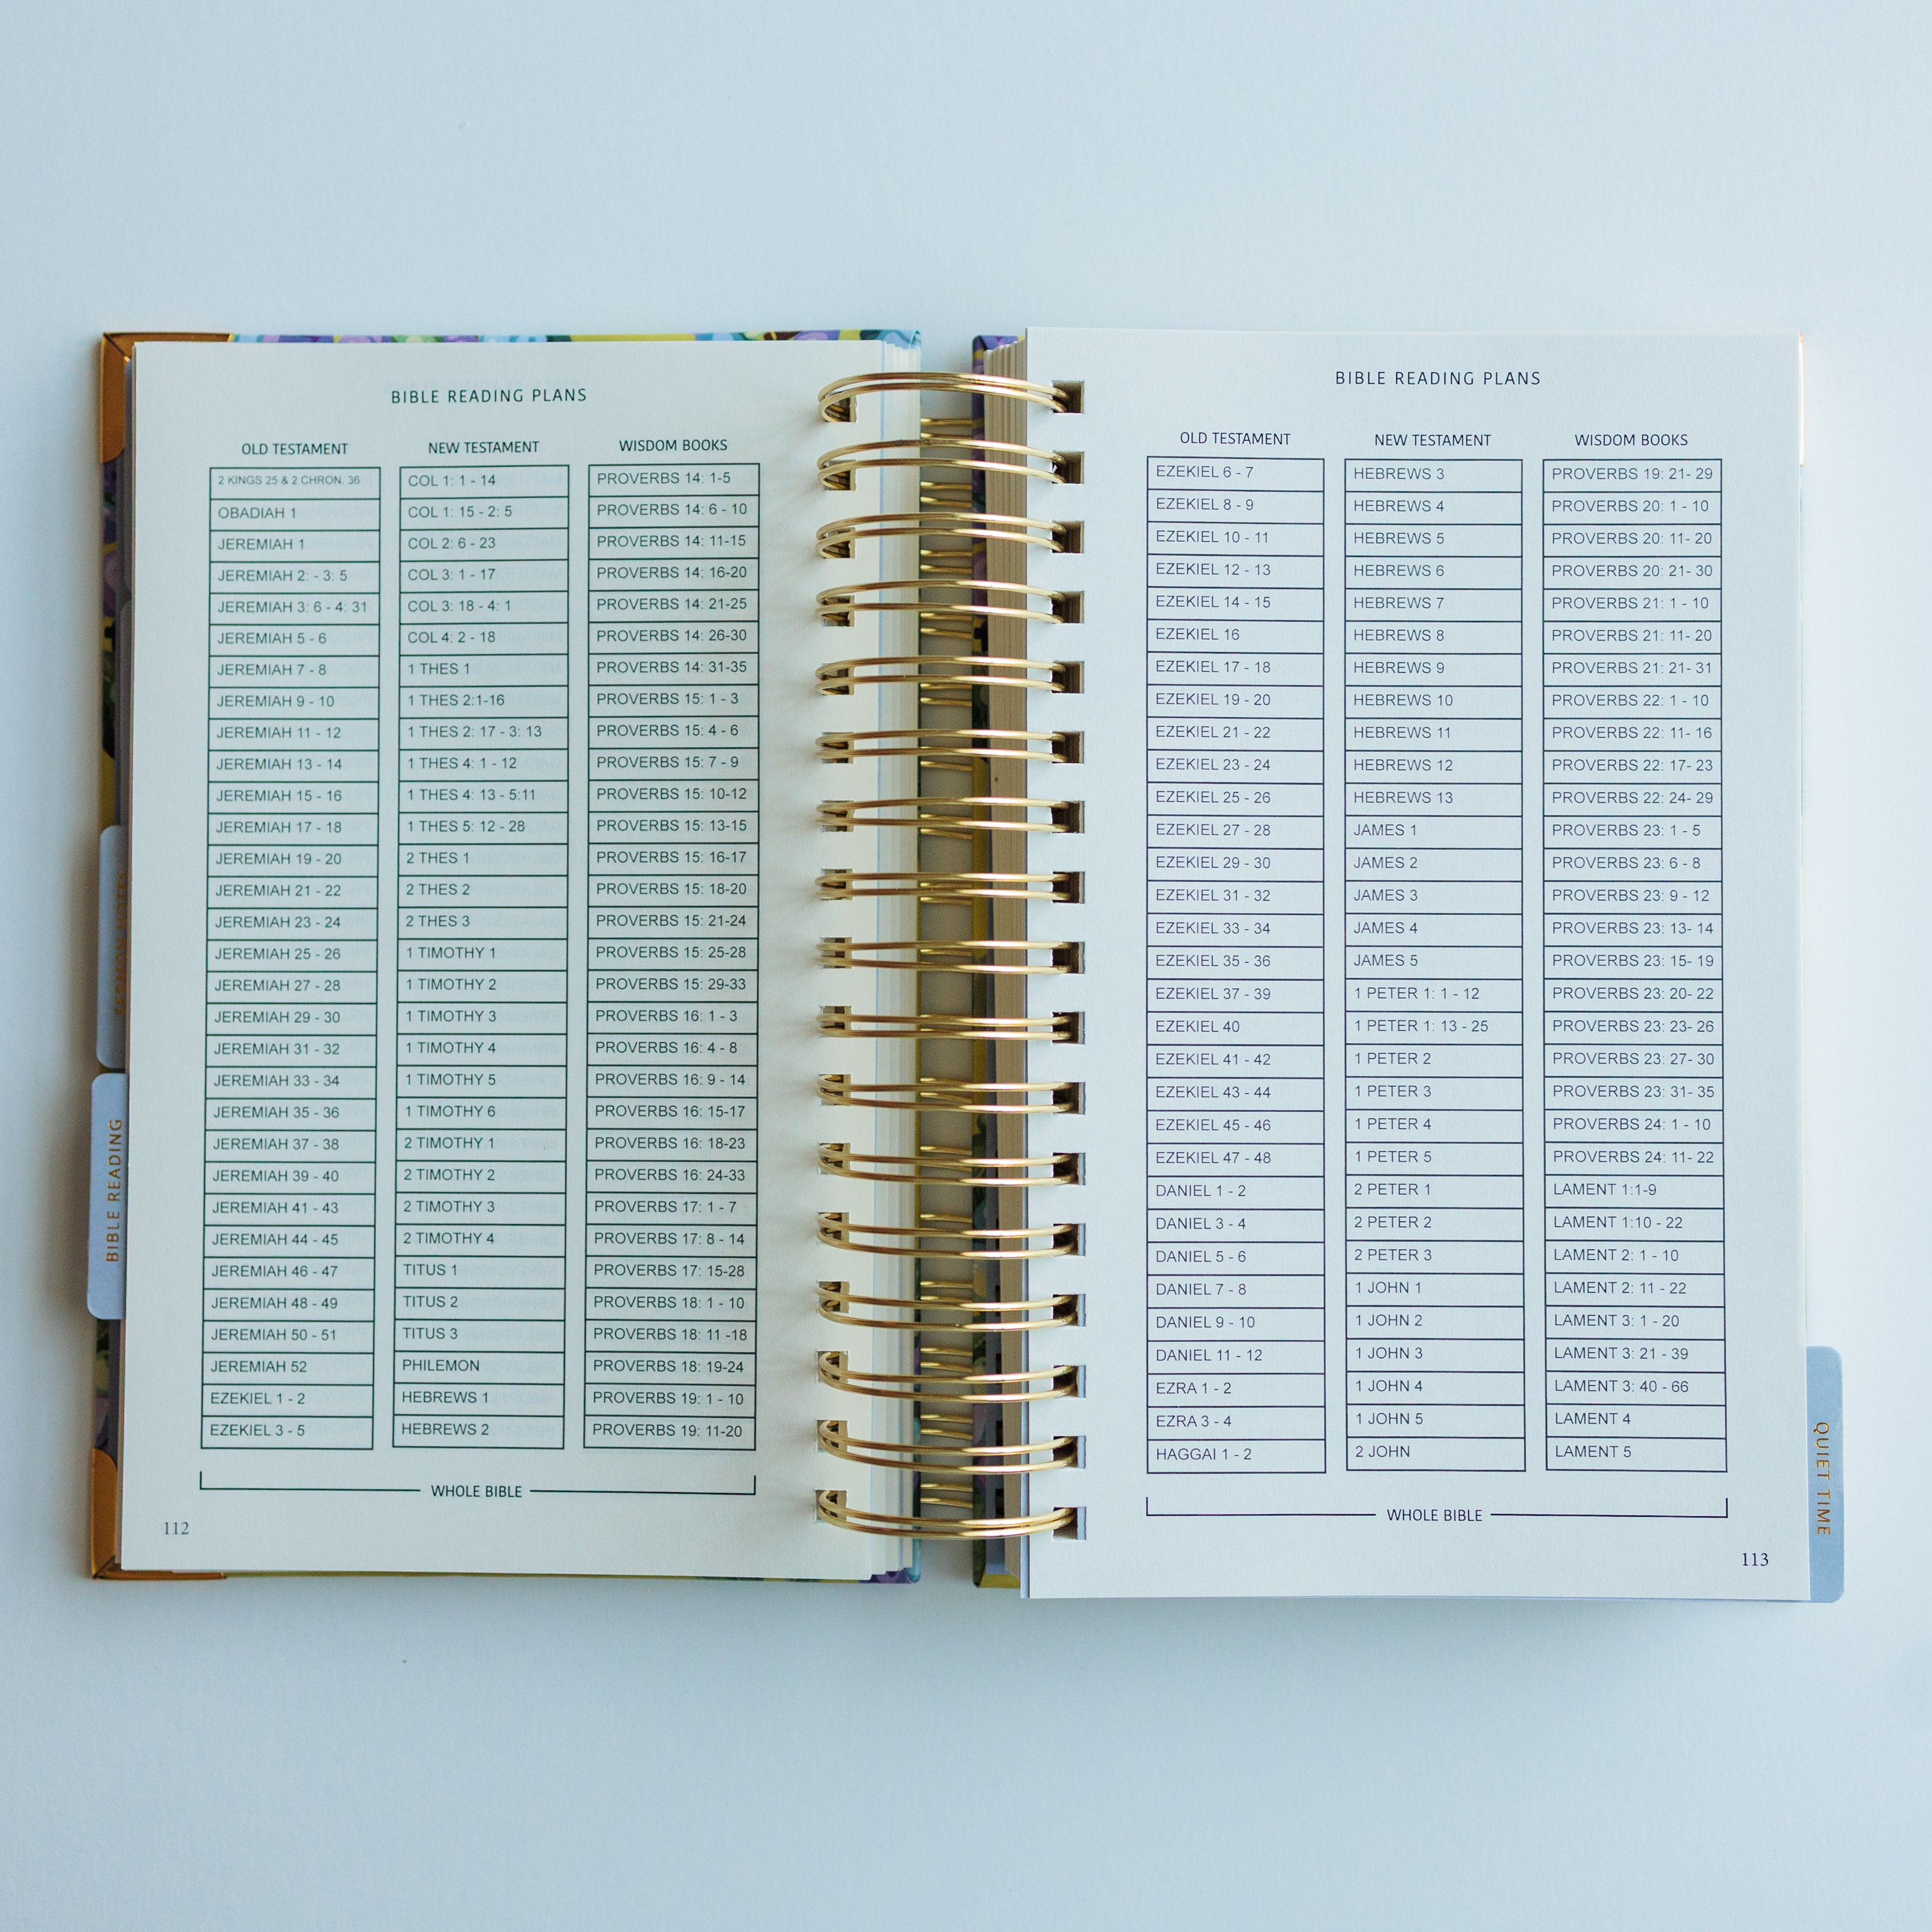 BIBLE READING PLANS
OLD TESTAMENT NEW TESTAMENT WISDOM BOOKS
2 KINGS 25 & 2 CHRON. 36 COL 1: 1 - 14 PROVERBS 14: 1-5
OBADIAH 1 COL 1: 15 - 2: 5 PROVERBS 14: 6 - 10
JEREMIAH 1 COL 2: 6 - 23 PROVERBS 14: 11-15
JEREMIAH 2: - 3: 5 COL 3: 1 - 17 PROVERBS 14: 16-20
JEREMIAH 3: 6 - 4: 31 COL 3: 18 - 4: 1 PROVERBS 14: 21-25
JEREMIAH 5 - 6 COL 4: 2 - 18 PROVERBS 14: 26-30
JEREMIAH 7 - 8 1 THES 1 PROVERBS 14: 31-35
JEREMIAH 9 - 10 1 THES 2:1-16 PROVERBS 15: 1 - 3
JEREMIAH 11 - 12 1 THES 2: 17 - 3: 13 PROVERBS 15: 4 - 6
JEREMIAH 13 - 14 1 THES 4: 1 - 12 PROVERBS 15: 7 - 9
JEREMIAH 15 - 16 1 THES 4: 13 - 5:11 PROVERBS 15: 10-12
JEREMIAH 17 - 18 1 THES 5: 12 - 28 PROVERBS 15: 13-15
JEREMIAH 19 - 20 2 THES 1 PROVERBS 15: 16-17
JEREMIAH 21 - 22 2 THES 2 PROVERBS 15: 18-20
JEREMIAH 23 - 24 2 THES 3 PROVERBS 15: 21-24
JEREMIAH 25 - 26 1 TIMOTHY 1 PROVERBS 15: 25-28
JEREMIAH 27 - 28 1 TIMOTHY 2 PROVERBS 15: 29-33
JEREMIAH 29 - 30 1 TIMOTHY 3 PROVERBS 16: 1 - 3
JEREMIAH 31 - 32 1 TIMOTHY 4 PROVERBS 16: 4 - 8
JEREMIAH 33 - 34 1 TIMOTHY 5 PROVERBS 16: 9 - 14
JEREMIAH 35 - 36 1 TIMOTHY 6 PROVERBS 16: 15-17
JEREMIAH 37 - 38 2 TIMOTHY 1 PROVERBS 16: 18-23
JEREMIAH 39 - 40 2 TIMOTHY 2 PROVERBS 16: 24-33
JEREMIAH 41 - 43 2 TIMOTHY 3 PROVERBS 17: 1 - 7
JEREMIAH 44 - 45 2 TIMOTHY 4 PROVERBS 17: 8 - 14
JEREMIAH 46 - 47 TITUS 1 PROVERBS 17: 15-28
JEREMIAH 48 - 49 TITUS 2 PROVERBS 18: 1 - 10
JEREMIAH 50 - 51 TITUS 3 PROVERBS 18: 11 -18
JEREMIAH 52 PHILEMON PROVERBS 18: 19-24
EZEKIEL 1 - 2 HEBREWS 1 PROVERBS 19: 1 - 10
EZEKIEL 3 - 5 HEBREWS 2 PROVERBS 19: 11-20
WHOLE BIBLE
112
BIBLE READING
BIBLE READING PLANS
OLD TESTAMENT NEW TESTAMENT WISDOM BOOKS
EZEKIEL 6 - 7 HEBREWS 3 PROVERBS 19: 21- 29
EZEKIEL 8 - 9 HEBREWS 4 PROVERBS 20: 1 - 10
EZEKIEL 10 - 11 HEBREWS 5 PROVERBS 20: 11- 20
EZEKIEL 12 - 13 HEBREWS 6 PROVERBS 20: 21- 30
EZEKIEL 14 - 15 HEBREWS 7 PROVERBS 21: 1 - 10
EZEKIEL 16 HEBREWS 8 PROVERBS 21: 11- 20
EZEKIEL 17 - 18 HEBREWS 9 PROVERBS 21: 21- 31
EZEKIEL 19 - 20 HEBREWS 10 PROVERBS 22: 1 - 10
EZEKIEL 21 - 22 HEBREWS 11 PROVERBS 22: 11- 16
EZEKIEL 23 - 24 HEBREWS 12 PROVERBS 22: 17- 23
EZEKIEL 25 - 26 HEBREWS 13 PROVERBS 22: 24- 29
EZEKIEL 27 - 28 JAMES 1 PROVERBS 23: 1 - 5
EZEKIEL 29 - 30 JAMES 2 PROVERBS 23: 6 - 8
EZEKIEL 31 - 32 JAMES 3 PROVERBS 23: 9 - 12
EZEKIEL 33 - 34 JAMES 4 PROVERBS 23: 13- 14
EZEKIEL 35 - 36 JAMES 5 PROVERBS 23: 15- 19
EZEKIEL 37 - 39 1 PETER 1: 1 - 12 PROVERBS 23: 20- 22
EZEKIEL 40 1 PETER 1: 13 - 25 PROVERBS 23: 23- 26
EZEKIEL 41 - 42 1 PETER 2 PROVERBS 23: 27- 30
EZEKIEL 43 - 44 1 PETER 3 PROVERBS 23: 31- 35
EZEKIEL 45 - 46 1 PETER 4 PROVERBS 24: 1 - 10
EZEKIEL 47 - 48 1 PETER 5 PROVERBS 24: 11- 22
DANIEL 1 - 2 2 PETER 1 LAMENT 1:1-9
DANIEL 3 - 4 2 PETER 2 LAMENT 1:10 - 22
DANIEL 5 - 6 2 PETER 3 LAMENT 2: 1 - 10
DANIEL 7 - 8 1 JOHN 1 LAMENT 2: 11 - 22
DANIEL 9 - 10 1 JOHN 2 LAMENT 3: 1 - 20
DANIEL 11 - 12 1 JOHN 3 LAMENT 3: 21 - 39
EZRA 1 - 2 1 JOHN 4 LAMENT 3: 40 - 66
EZRA 3 - 4 1 JOHN 5 LAMENT 4
HAGGAI 1 - 2 2 JOHN LAMENT 5
WHOLE BIBLE
113
QUIET TIME